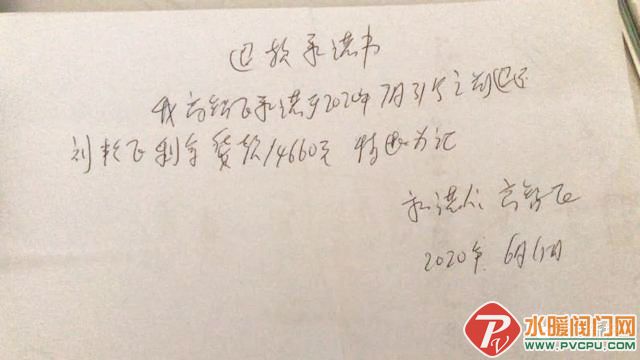 退款承诺书
我高智飞承诺于2020年7月31号之前退还
刘彩飞剩余货款14660元 特此为记
承诺人:高智飞
2020年 6月 日
水暖阀门网
WWW.PVCPU.COM